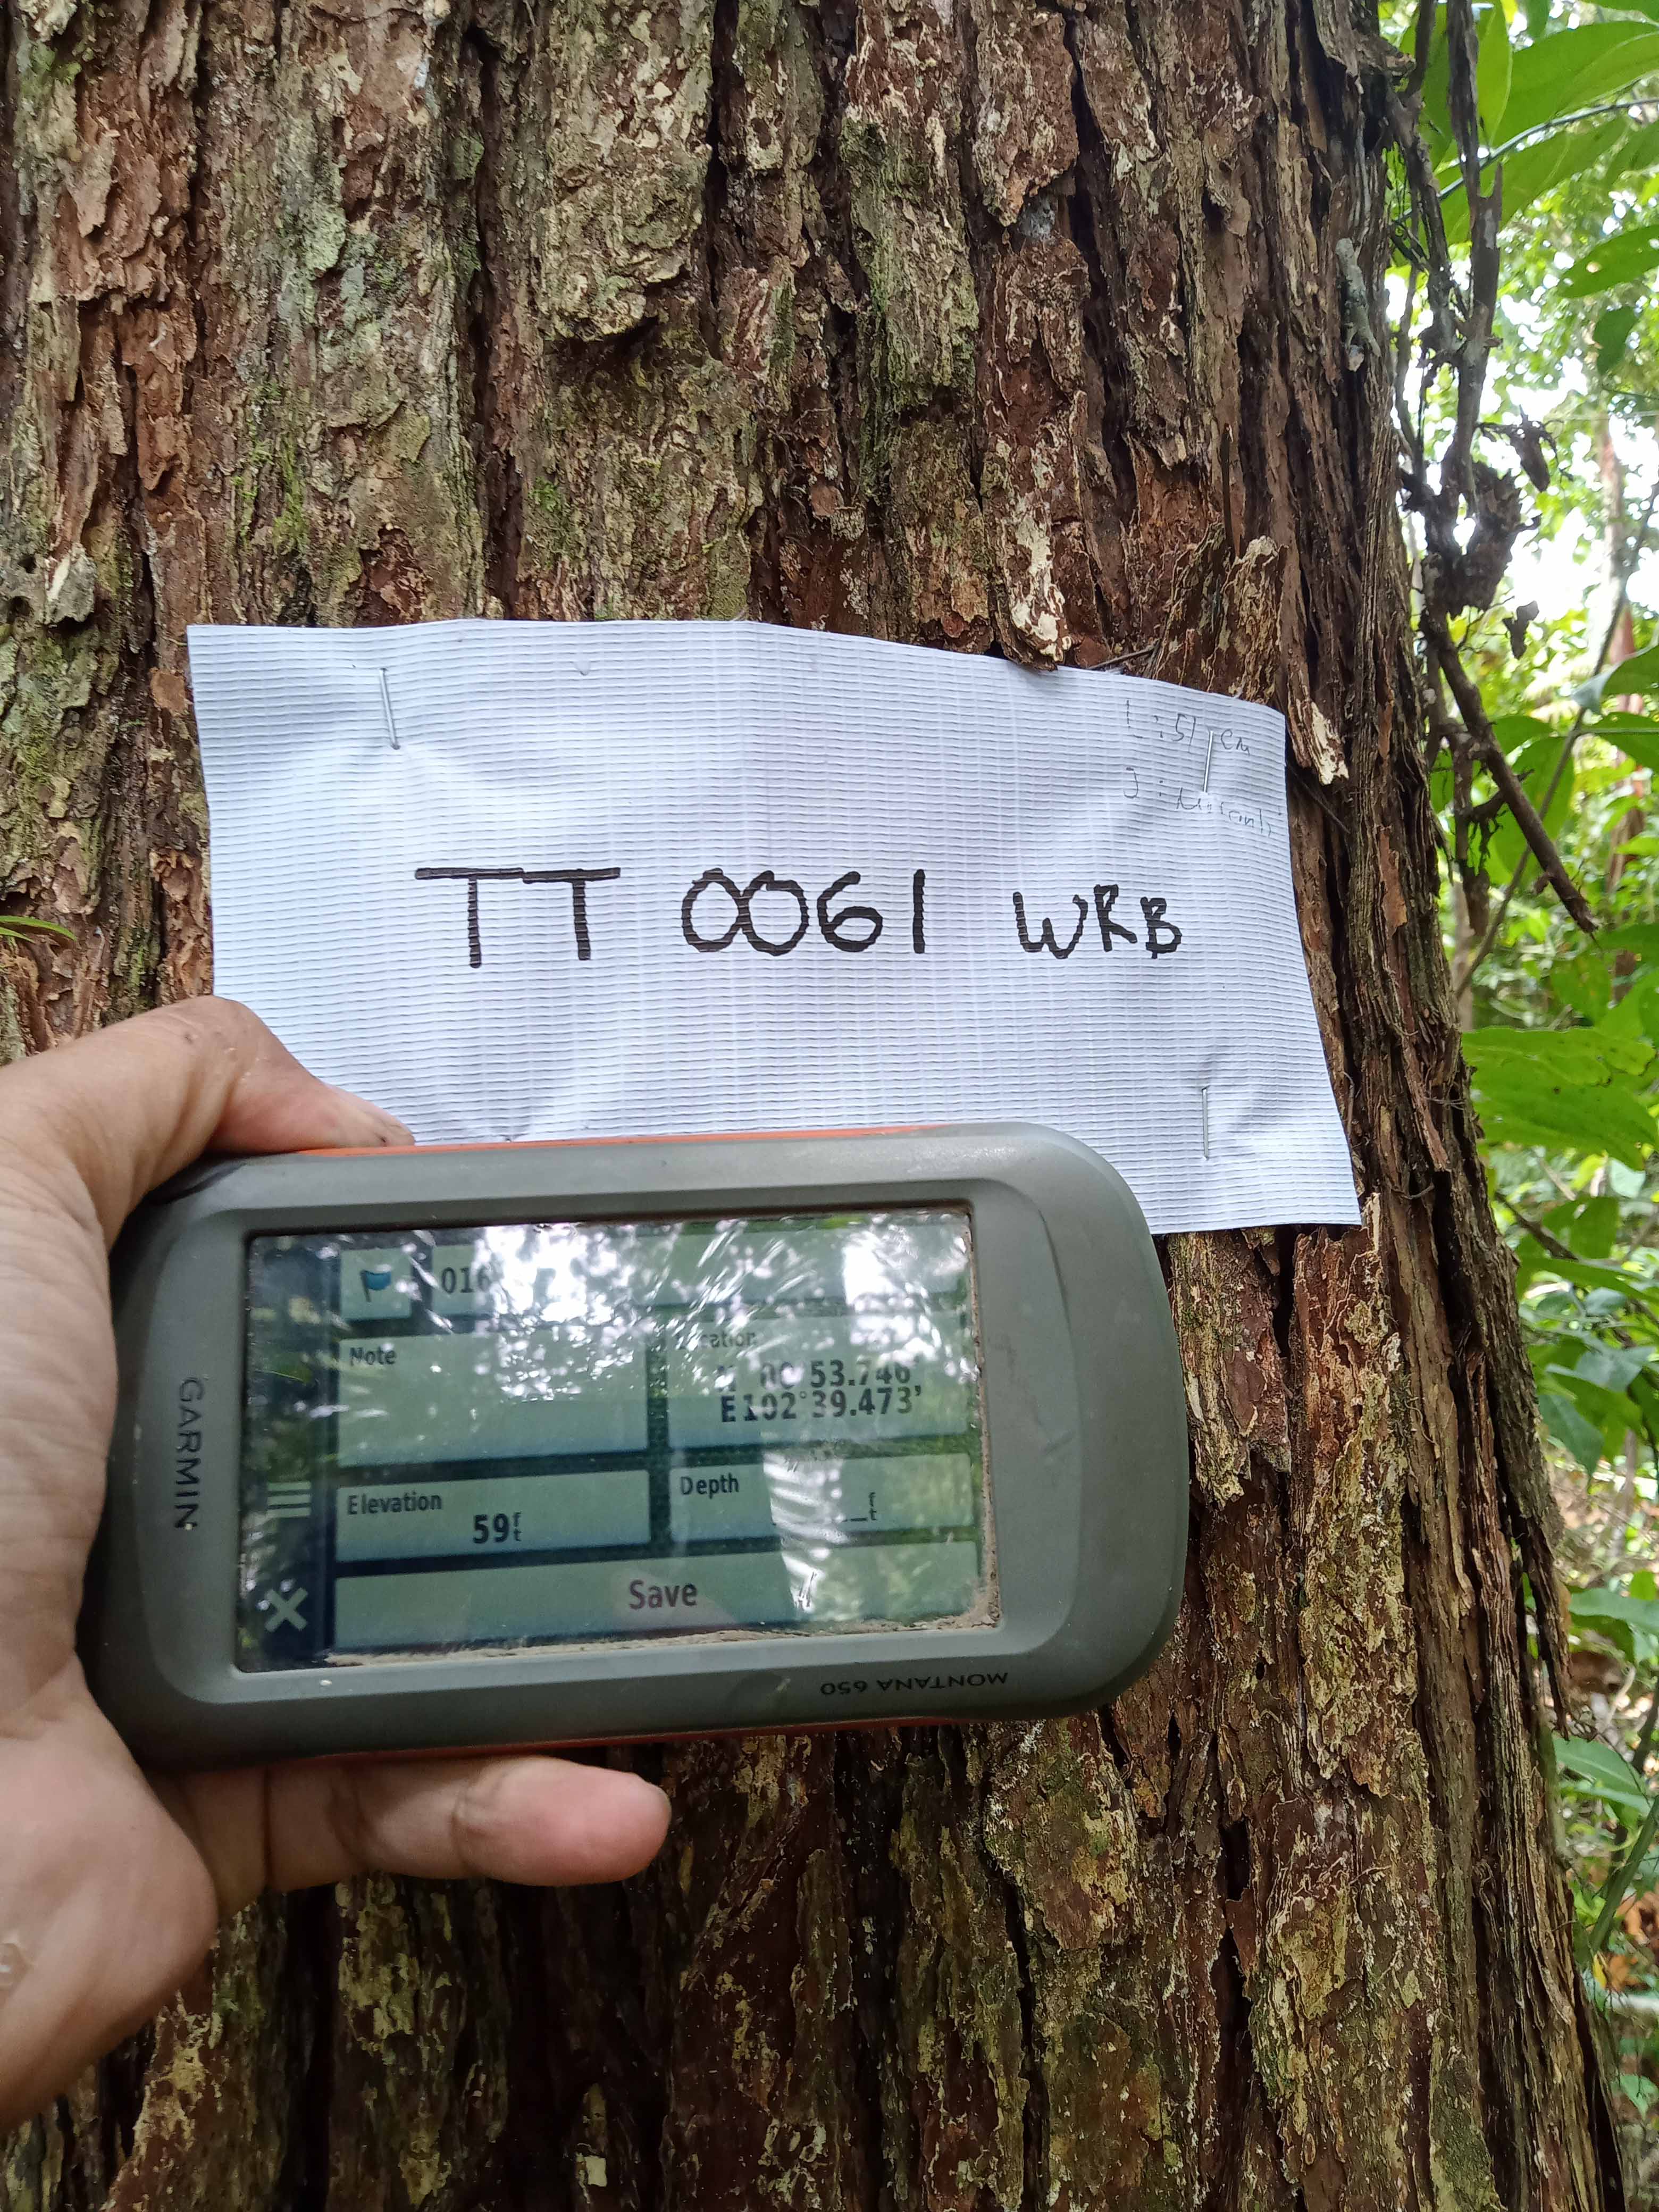 L : 51 cm
J : Meranti
TT 0061 WRB
GARMIN
Note
Location
53.746'
E102°39.473'
Elevation
59ft
Depth
__ft
Save
MONTANA 650